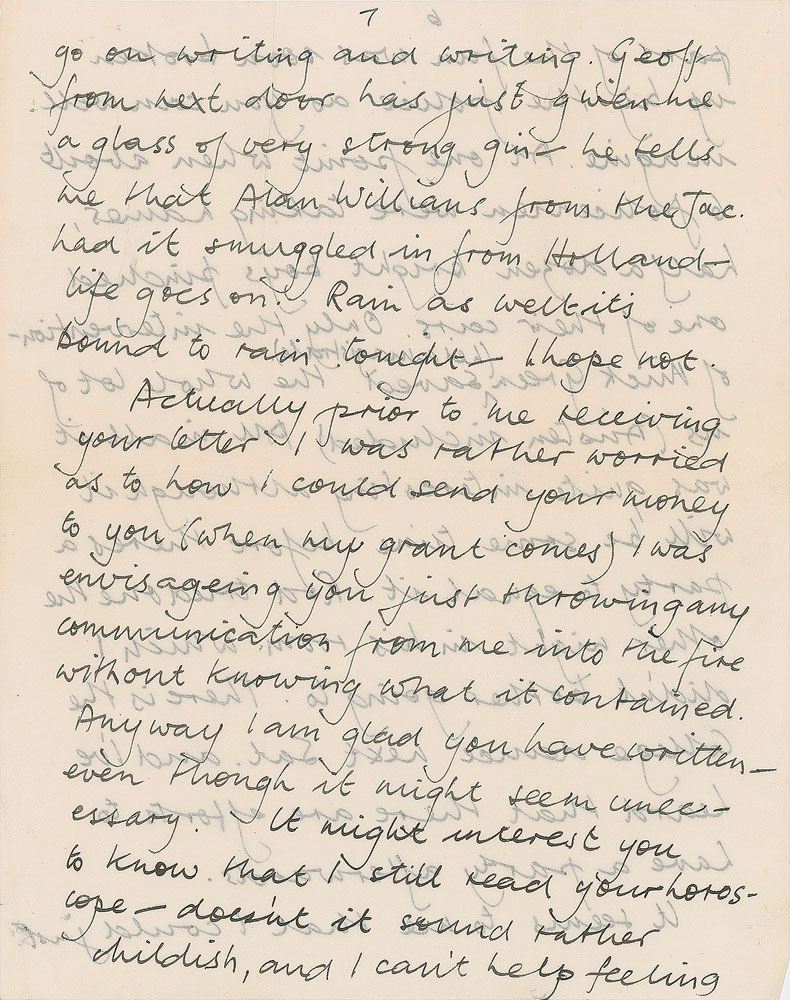 7
go on writing and writing. Geoff
from next door has just given me
a glass of very strong gin – he tells
me that Alan Williams from the Jac.
had it smuggled in from Holland –
life goes on! Rain as well – its
bound to rain tonight – I hope not.
Actually prior to me receiving
your letter I was rather worried
as to how I could send your money
to you (when my grant comes) I was
envisageing you just throwing any
communication from me into the fire
without knowing what it contained.
Anyway I am glad you have written –
even though it might seem unec-
essary. It might interest you
to know that I still read your horos-
cope – doesn't it sound rather
childish, and I can't help feeling